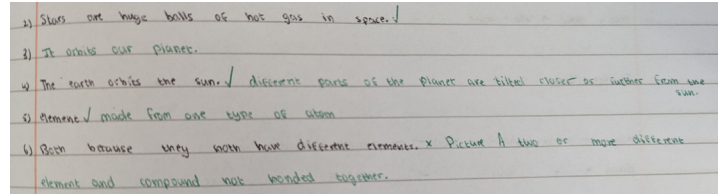 2) Stars are huge balls of hot gas in space. ✓
3) It orbits our planet.
4) The earth orbits the sun. ✓ different parts of the planet are tilted closer or further from the
sun.
5) element ✓ made from one type of atom
6) Both because they both have different elements. x Picture A two or more different
element and compound not bonded together.